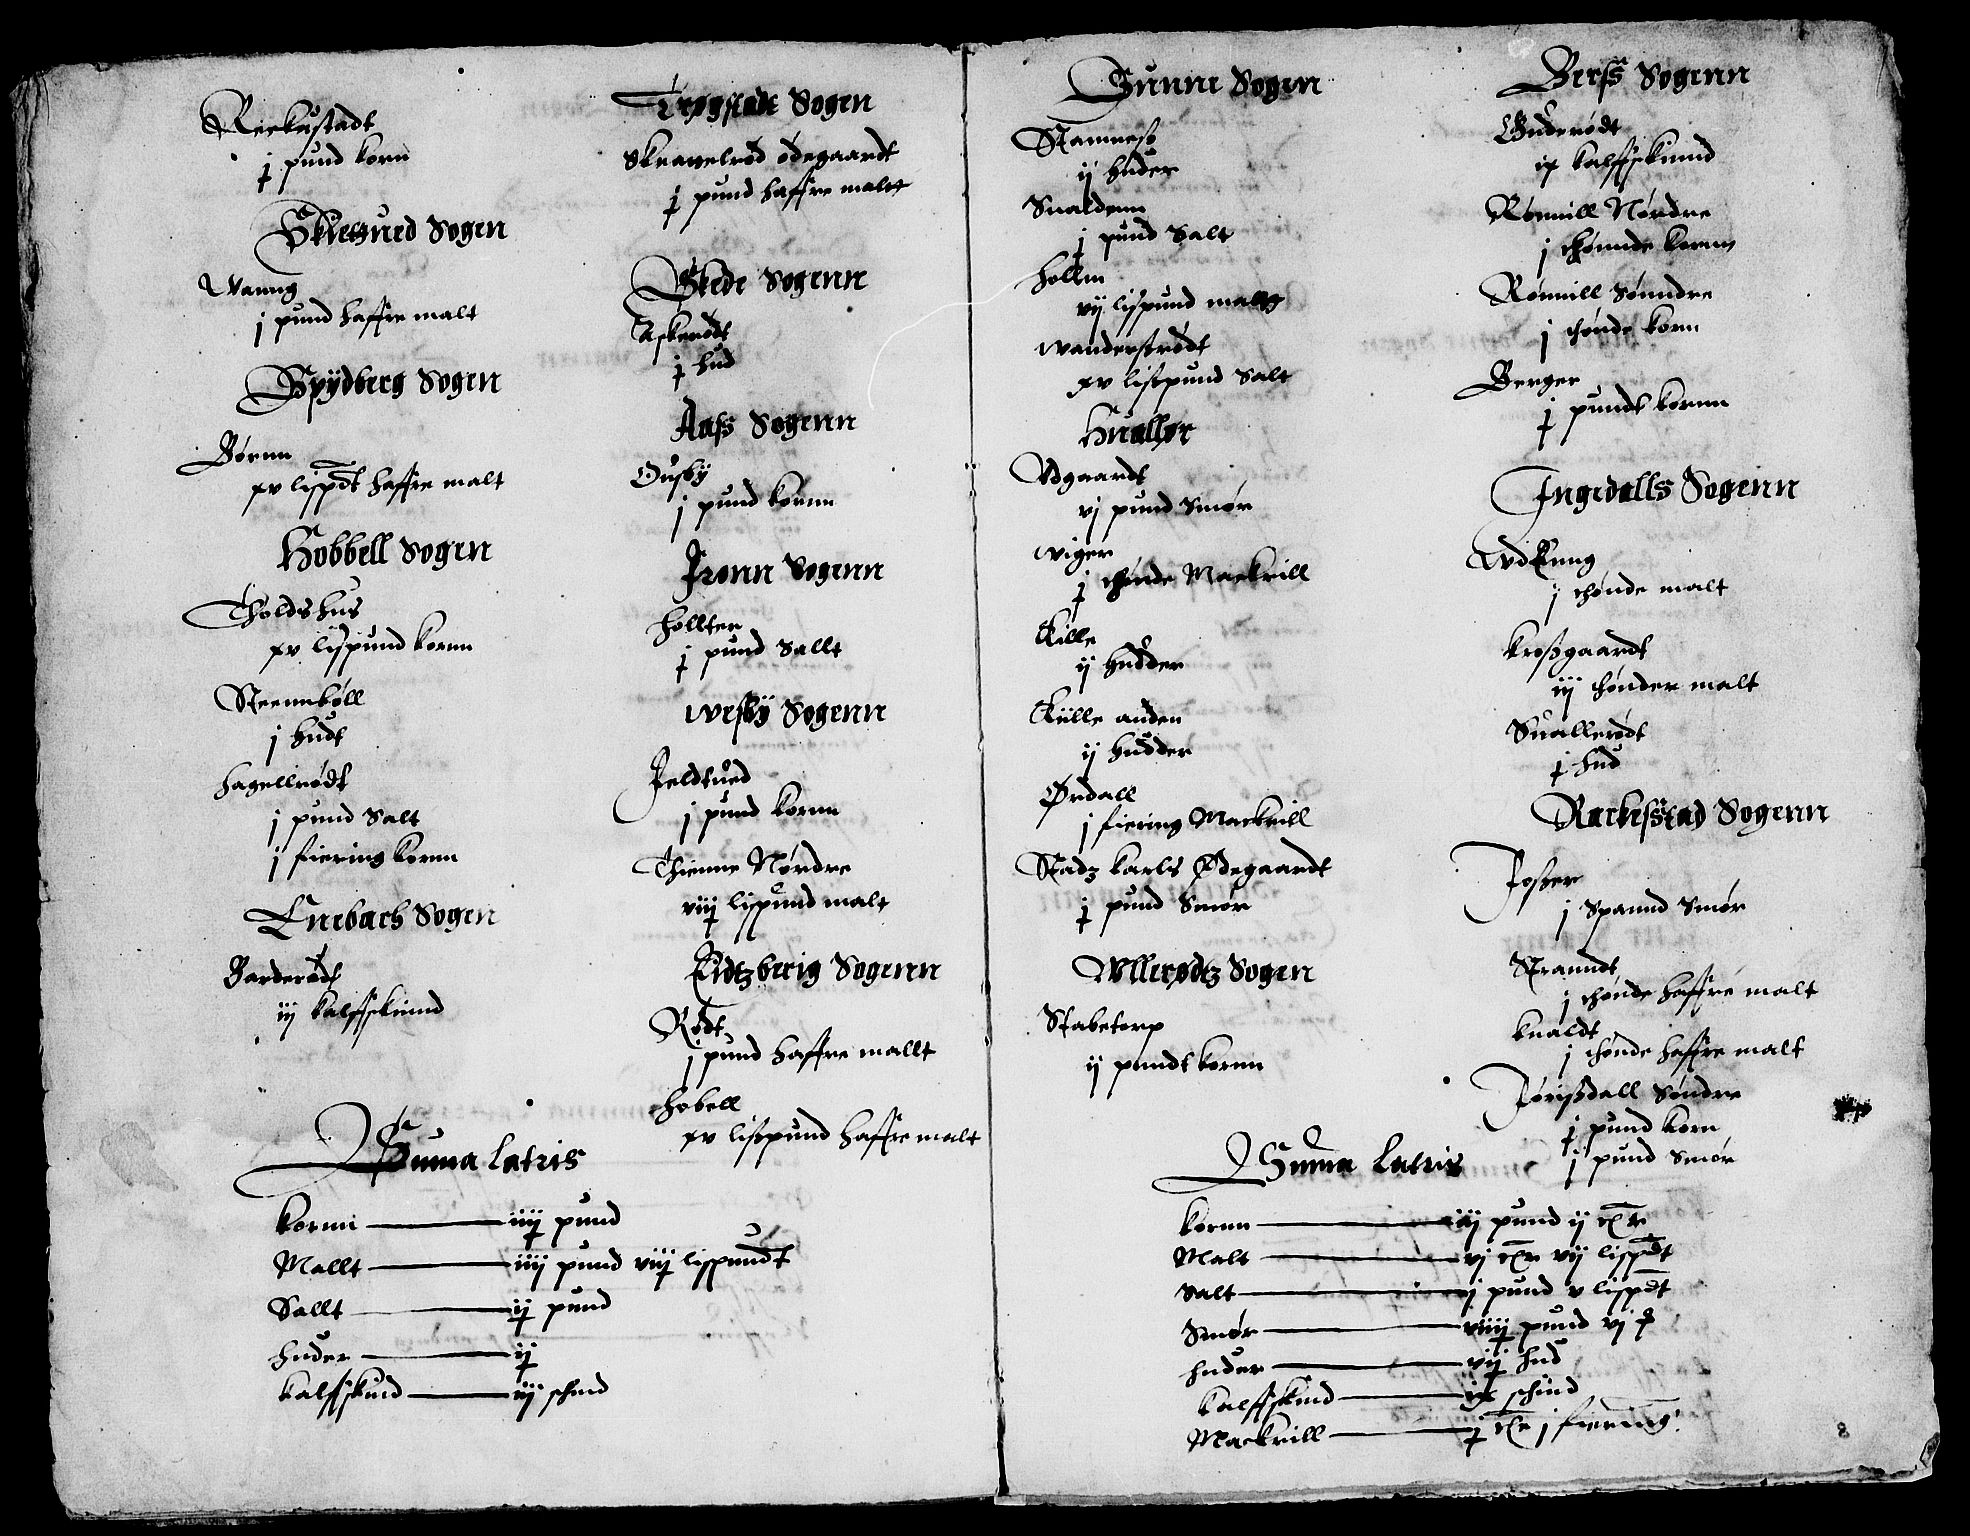 Rickustadt
j pund korn
Skiegued Sogen
Wanng
j pund haffre malt
Spydberg Sogen
Børnn
xv lispdt haffre malt
Hobbell Sogen
Tholds hus
xv lispund kornn
Steennbøll
j hudt
Hagellrødt
j pund Salt
j fiering kornn
Enebach Sogen
Barderødt
iij kalffskinnd
Suma latris
Kornn iiij pund
Mallt iiij pund viij lispundt
Sallt ij pund
Huder ij
Kalffskind iij schind
Trøgstadt Sogen
Skraaelrød ødegaardt
j pund haffre maltt
Skede Sogenn
Askerødt
j hud
Aass Sogenn
Ousby
j pund kornn
Jronn Sogenn
Hollter
j pund Sallt
Wesby Sogenn
Jeldtued
j pund kornn
Thienne Nørdre
viij lispund malt
Eidtzberig Sogenn
Rødt
j pund haffre mallt
Hobell
xv listpund haffre malt
Sunne Sogen
Stamnesø
ij huder
Snaldenn
j pund Salt
Hollm
vij lispund maltt
Wanderstrødt
xv listpund Salt
Huallør
Vdgaardt
vj pund Smør
Wiger
j thønde Mackrill
Kille
ij hudder
Kiille anden
ij hudder
Ørdall
j fiering Mackrill
Stadz karls Ødegaardt
j pund Smør
Wllerødtz Sogen
Stabetorp
ij pundt kornn
Suma latris
Kornn iiij pund ij tr
Malt vj tr vij lispdt
Salt j pund v lispdt
Smør viiij pund vj
Huder vij hud
Kalffskind ix schind
Mackrill j tr j fiering
Berss Sogenn
Guderødt
ix kalffskinnd
Rømill Nørdre
j thønnde kornn
Rømill Sønndre
j thønde kornn
Berger
j pundt kornn
Ingedalls Sogenn
j thønde malt
Krossgaardt
iij thønder malt
Suallerødt
j hud
Rackesstad Sogenn
Josser
j Spannd Smør
Stranndt
j thønde haffre malt
Knaldt
j thønde haffre malt
Jørissdall Søndre
j pund korn
j pund Smør
8